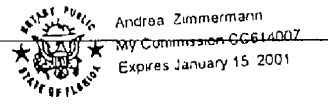 NOTARY PUBLIC
STATE OF FLORIDA
Andrea Zimmermann
My Commission CC614007
Expires January 15 2001